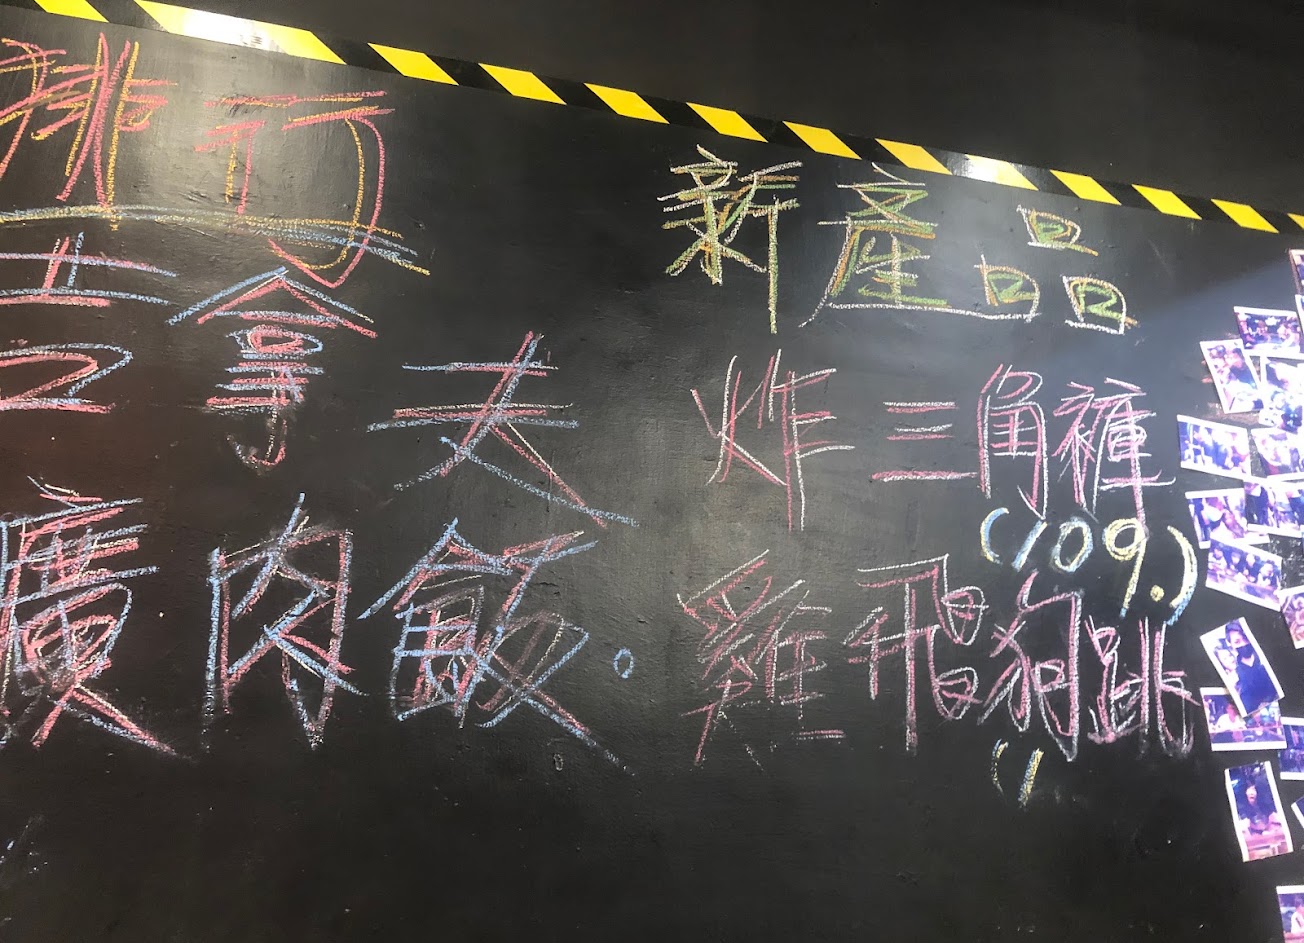 排行
吉拿夫
廣肉飯。
新產品
炸三角褲
(109.)
雞飛狗跳
(1